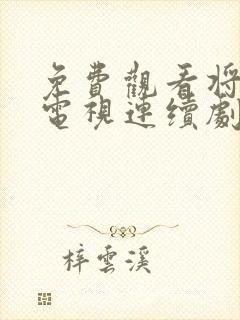 免費觀看將
電視連續劇
梓雲溪